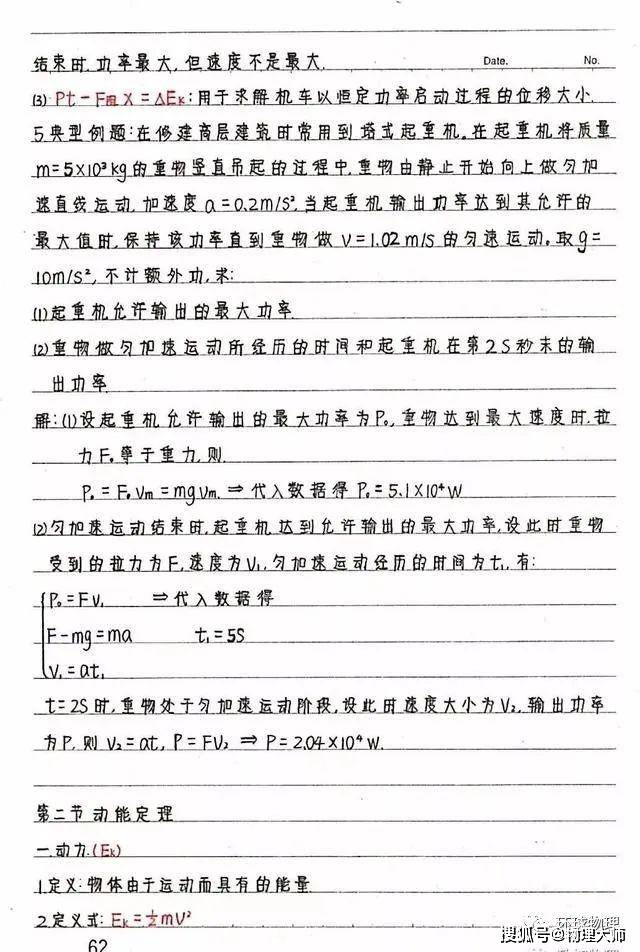 结束时,功率最大,但速度不是最大.
Date. No.
(3) Pt-F阻X=ΔEk:用于求解机车以恒定功率启动过程的位移大小.
5.典型例题:在修建高层建筑时常用到塔式起重机。在起重机将质量
m=5×10³kg的重物竖直吊起的过程中,重物由静止开始向上做匀加
速直线运动,加速度a=0.2m/s²,当起重机输出功率达到其允许的
最大值时,保持该功率直到重物做v=1.02m/s的匀速运动。取g=
10m/s²,不计额外功,求:
(1)起重机允许输出的最大功率.
(2)重物做匀加速运动所经历的时间和起重机在第2S秒末的输
出功率.
解:(1)设起重机允许输出的最大功率为P₀,重物达到最大速度时,拉
力F₀等于重力,则.
P₀=F₀Vm=mgvm. ⇒代入数据得 P₀=5.1×10⁴W
(2)匀加速运动结束时,起重机达到允许输出的最大功率,设此时重物
受到的拉力为F,速度为V₁,匀加速运动经历的时间为t₁,有:
P₀=Fv₁ ⇒代入数据得
F-mg=ma t₁=5S
V₁=at₁
t=2S时,重物处于匀加速运动阶段,设此时速度大小为V₂,输出功率
为P,则 V₂=at, P=FV₂ ⇒ P=2.04×10⁴W.
第二节 动能定理
一.动力.(Ek)
1.定义:物体由于运动而具有的能量
2.定义式: Ek=½mV²
62
环球物理
搜狐号@物理大师